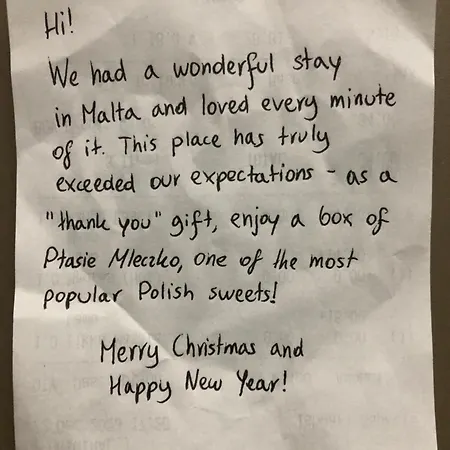 Hi!
We had a wonderful stay
in Malta and loved every minute
of it. This place has truly
exceeded our expectations - as a
"thank you" gift, enjoy a box of
Ptasie Mleczko, one of the most
popular Polish sweets!
Merry Christmas and
Happy New Year!